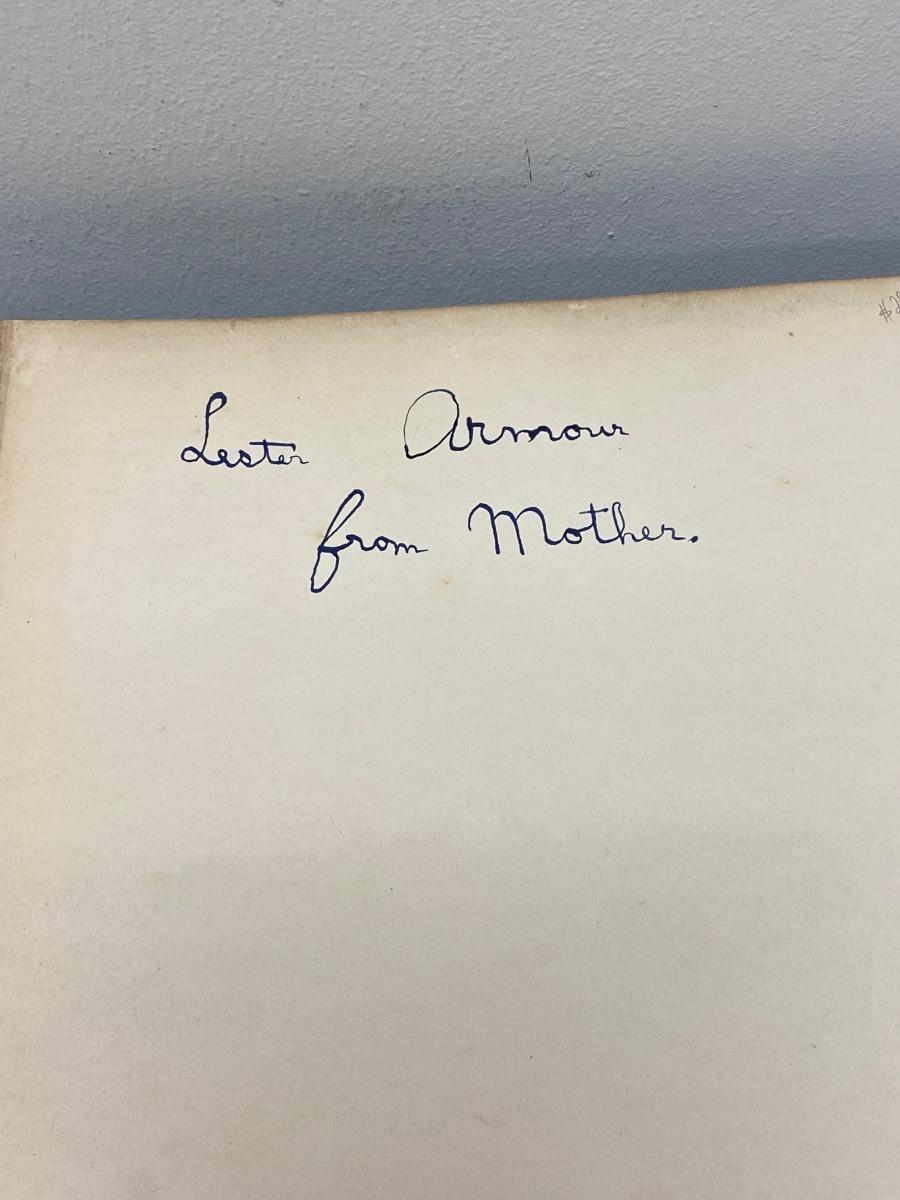 Lester Armour
from Mother.